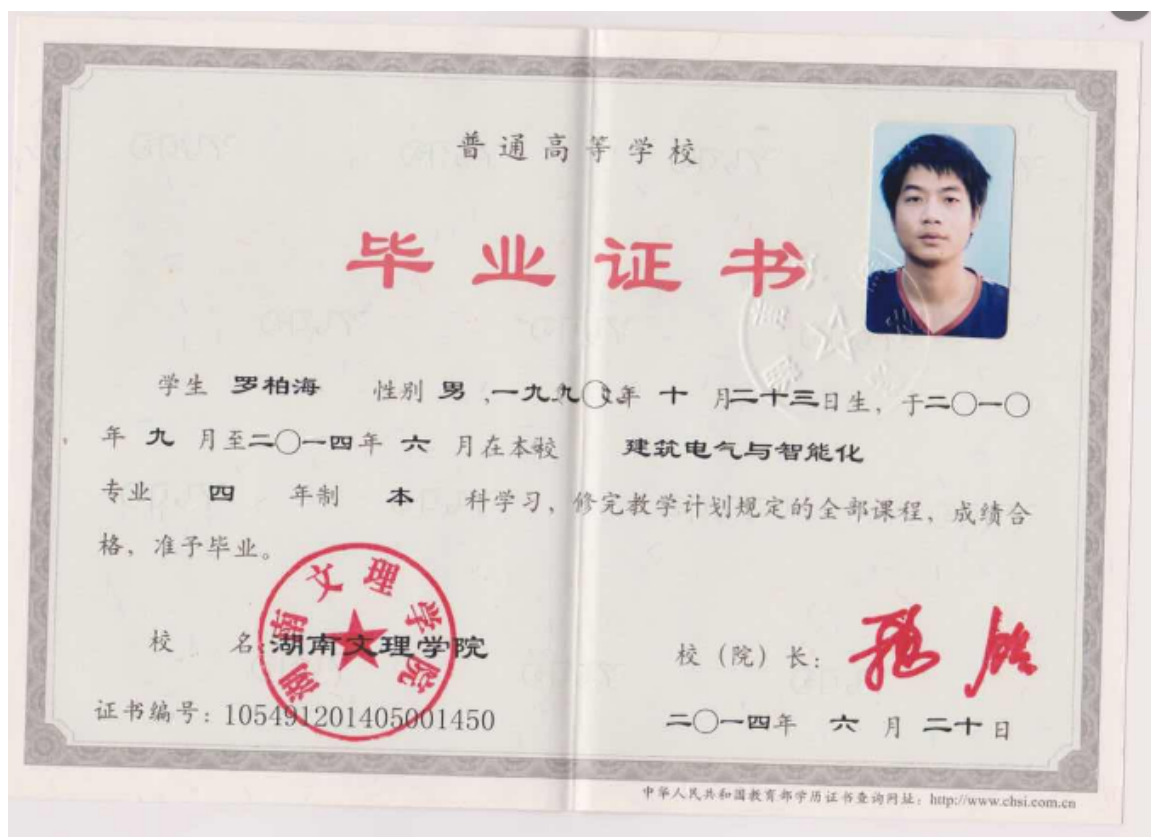 普通高等学校
毕业证书
学生 罗柏海 性别 男 ,一九九〇年 十 月二十三日生, 于二〇一〇
年 九 月至二〇一四年 六 月在本校 建筑电气与智能化
专业 四 年制 本 科学习, 修完教学计划规定的全部课程, 成绩合
格, 准予毕业。
湖南文理学院
校 名:湖南文理学院
校(院)长:
证书编号: 105491201405001450
二〇一四年 六 月 二十日
中华人民共和国教育部学历证书查询网址: http://www.chsi.com.cn